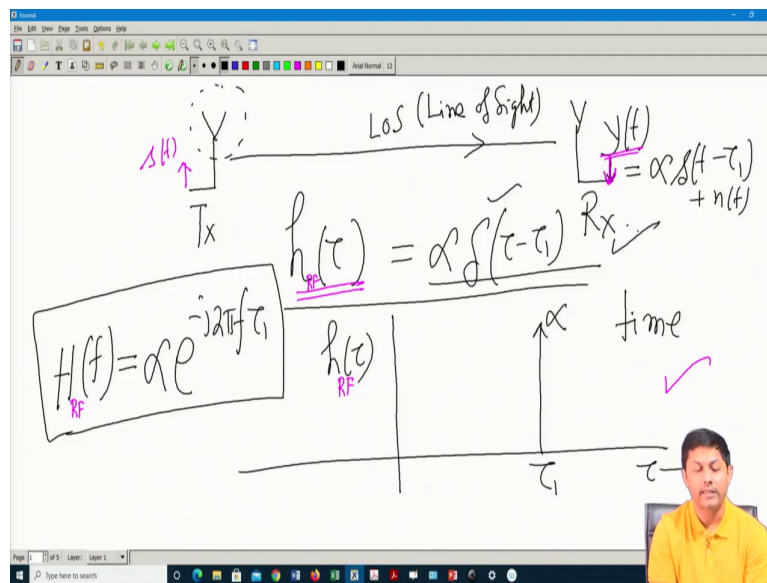 Xournal
File Edit View Page Tools Options Help
Arial Normal 12
LOS (Line of Sight)
s(t)
y(t)
= αs(t-τ₁)
+ n(t)
Tx
Rx
h_RF(τ) = αδ(τ-τ₁)
H_RF(f) = αe^{-j2πfτ₁}
h_RF(τ)
α
time
τ₁
τ
Page 1 of 5 Layer: Layer 1
Type here to search